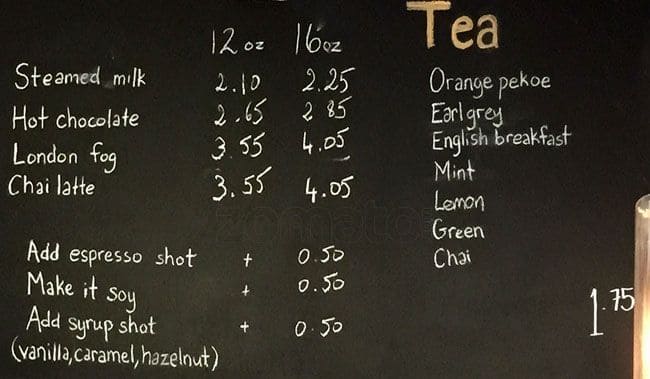 12 oz 16oz
Steamed milk 2.10 2.25
Hot chocolate 2.65 2 85
London fog 3.55 4.05
Chai latte 3.55 4.05
Add espresso shot + 0.50
Make it soy + 0.50
Add syrup shot + 0.50
(vanilla, caramel, hazelnut)
Tea
Orange pekoe
Earl grey
English breakfast
Mint
Lemon
Green
Chai
1.75
zomato